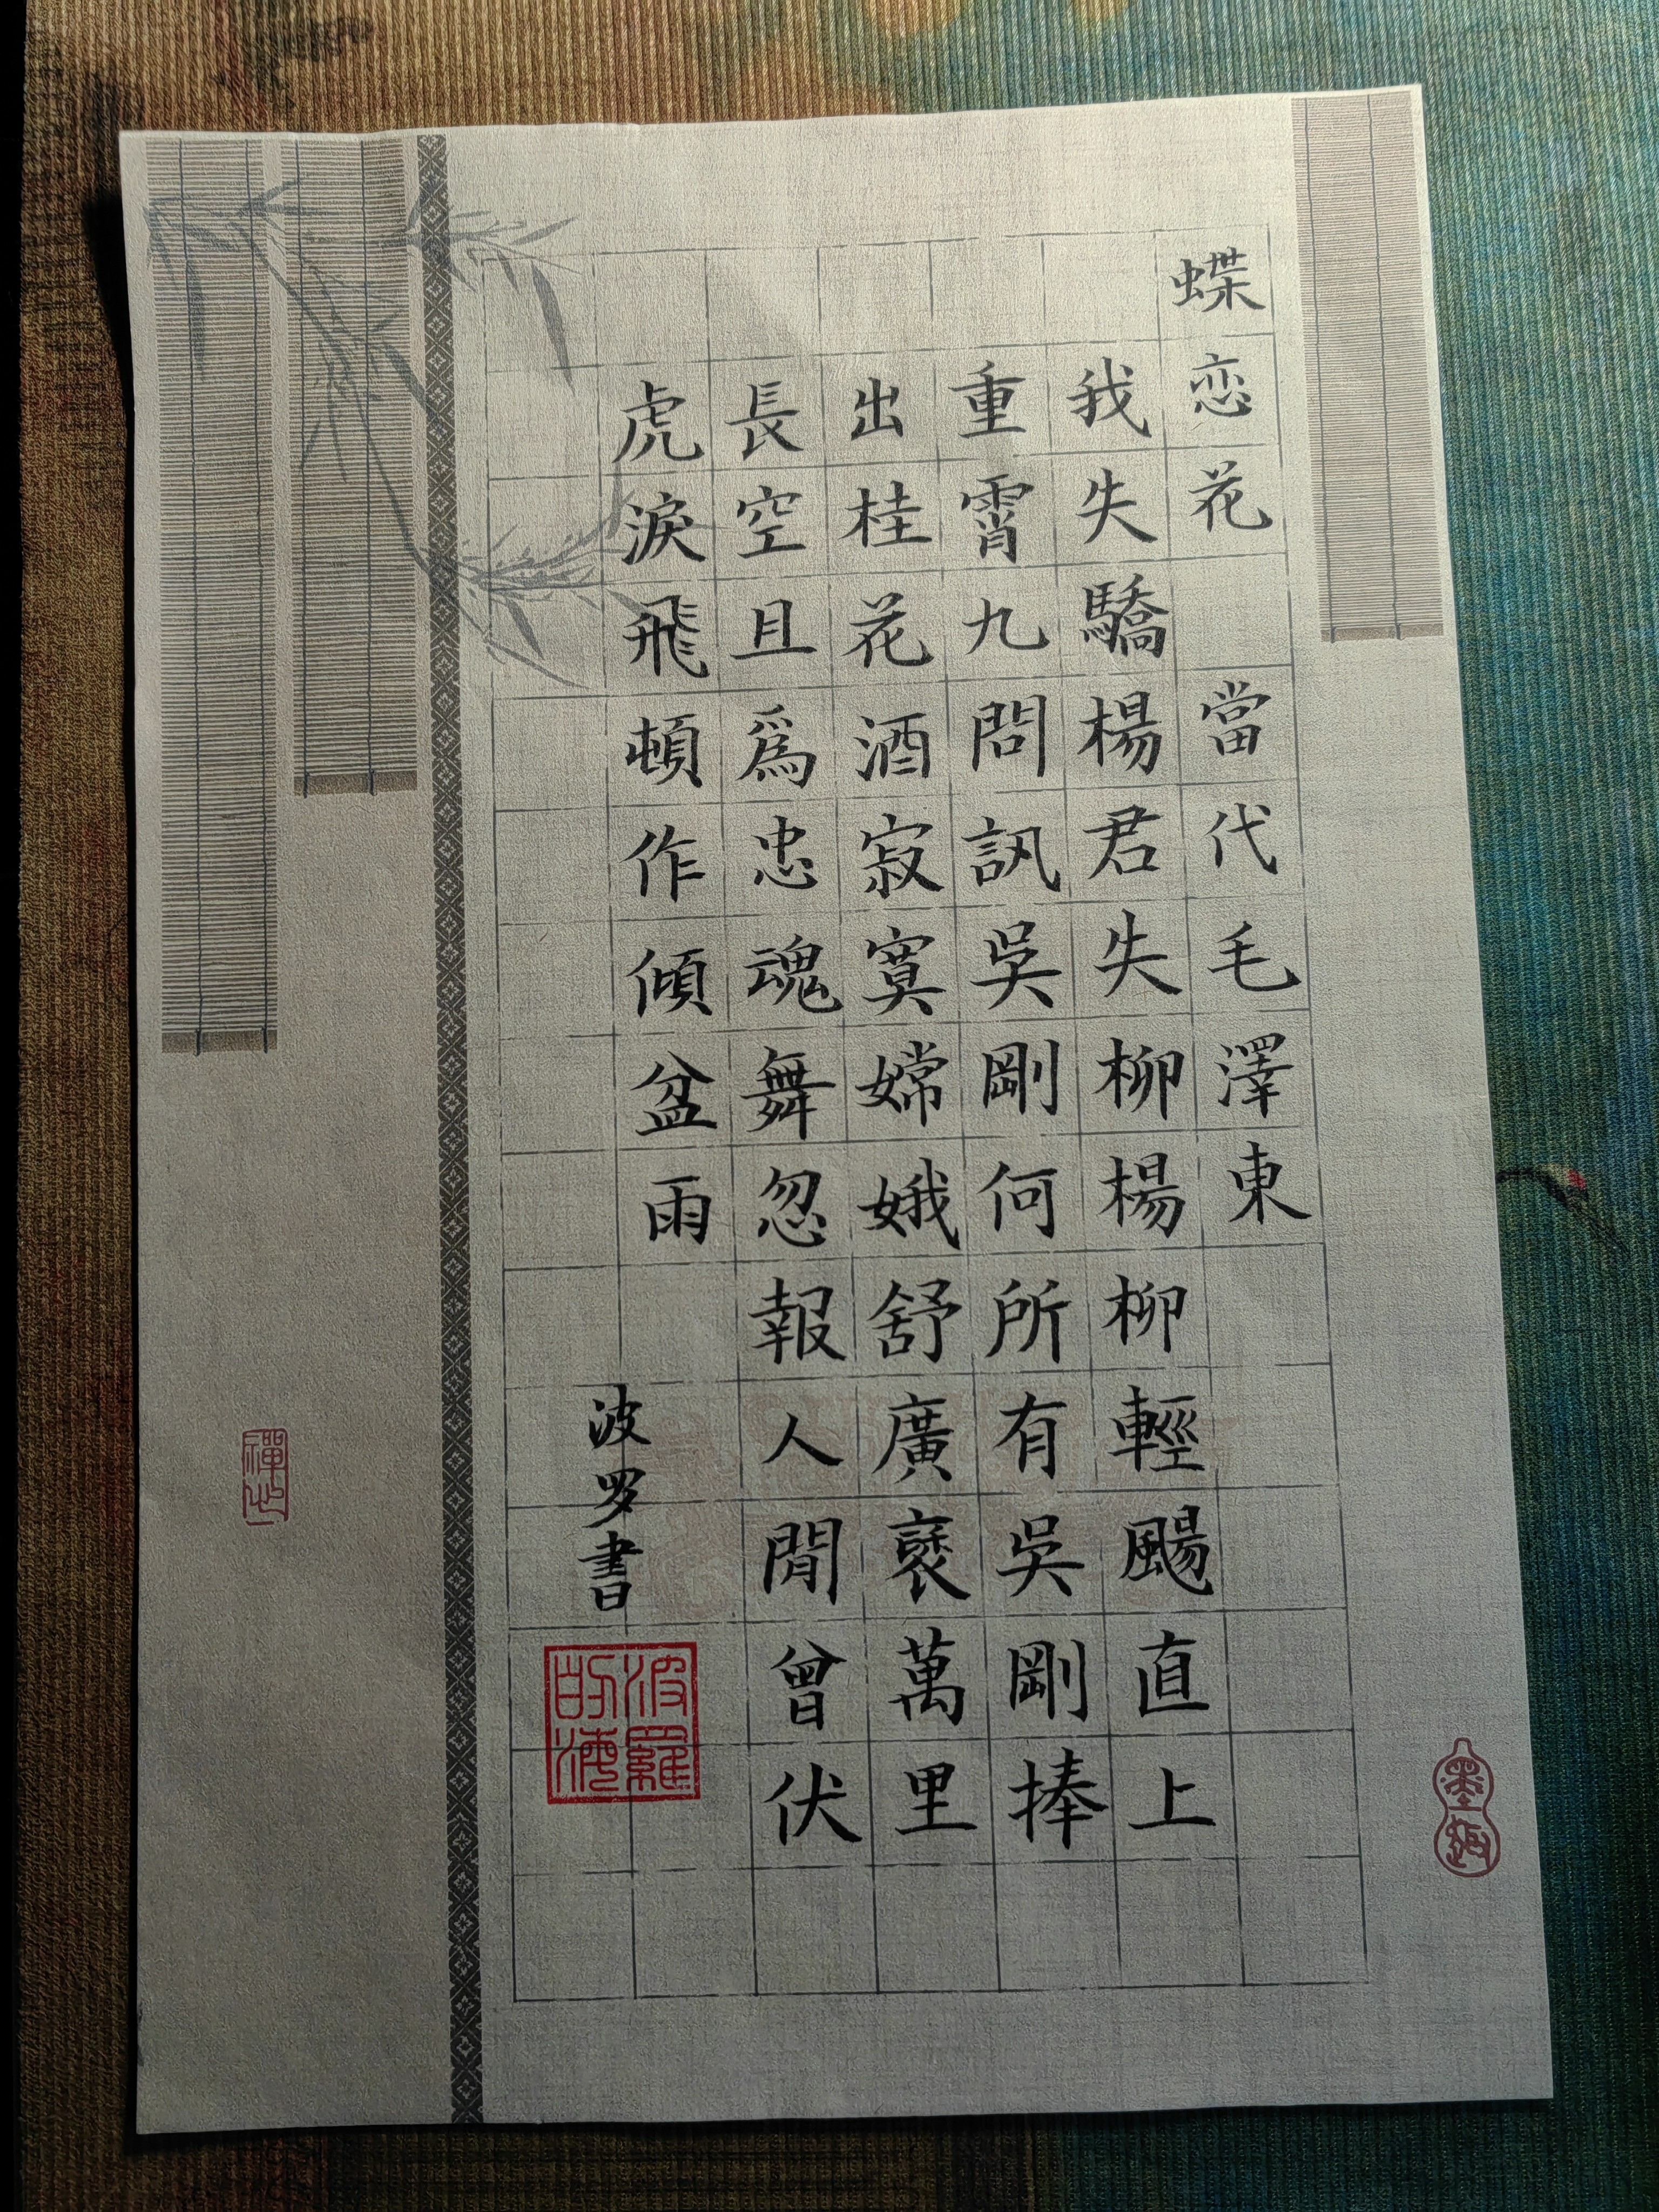 蝶恋花 當代毛澤東
我失驕楊君失柳楊柳輕颺直上
重霄九問訊吳剛何所有吳剛捧
出桂花酒寂寞嫦娥舒廣褎萬里
長空且爲忠魂舞忽報人間曾伏
虎淚飛頓作傾盆雨
波罗書
波羅的海
禪心
墨趣